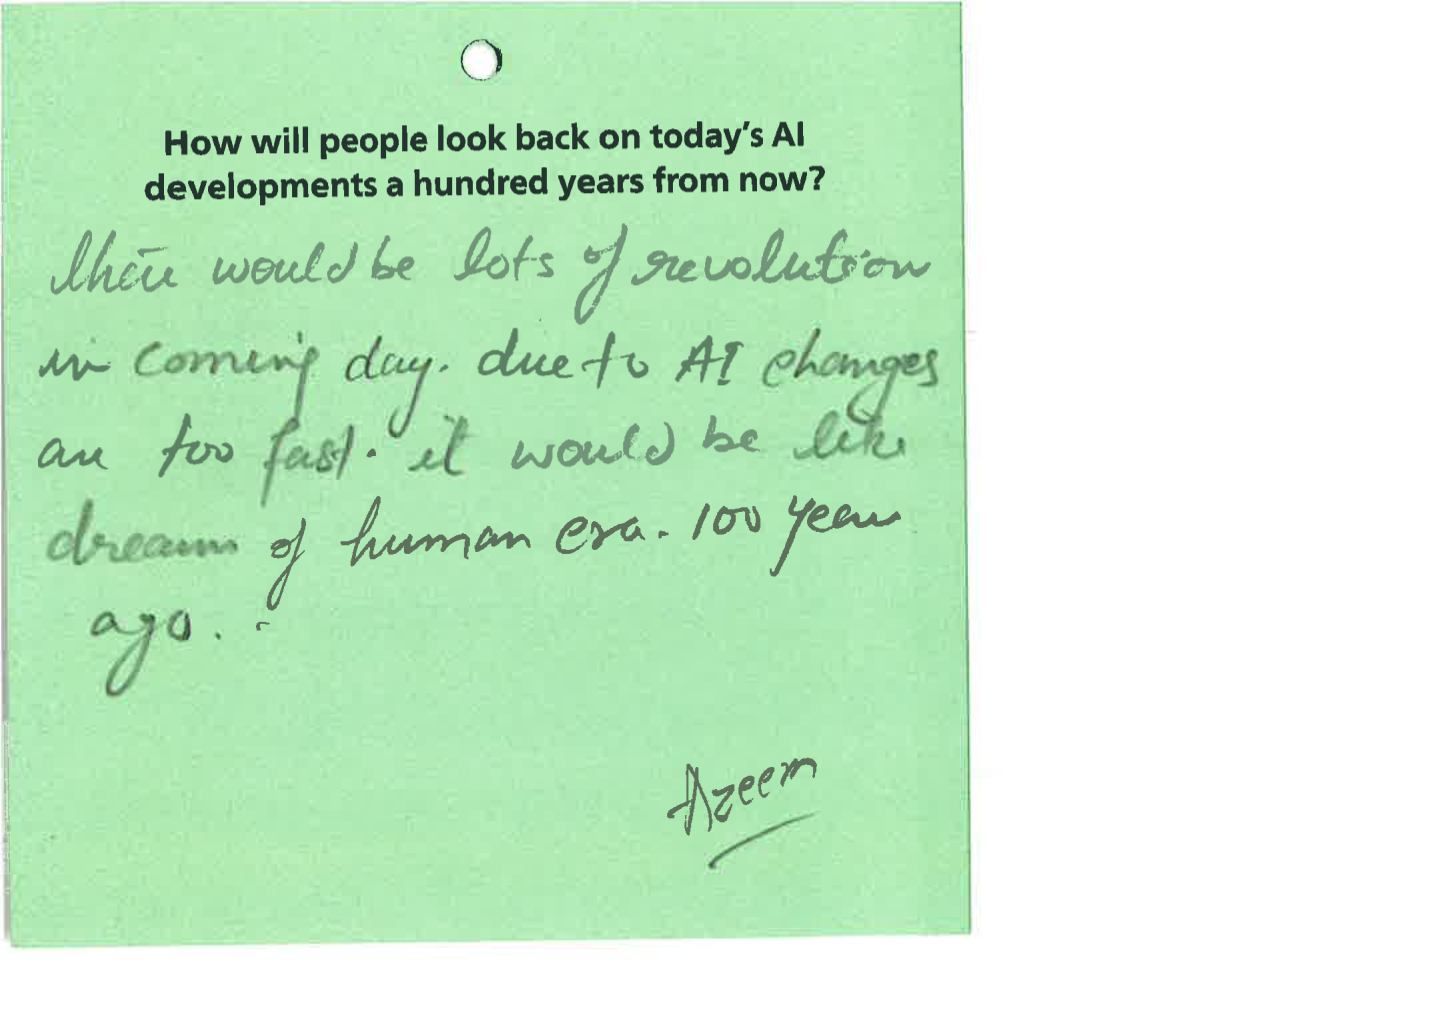 How will people look back on today's AI
developments a hundred years from now?
there would be lots of revolution
in coming day. due to AI changes
are too fast. it would be like
dream of human era. 100 years
ago.
Azeem